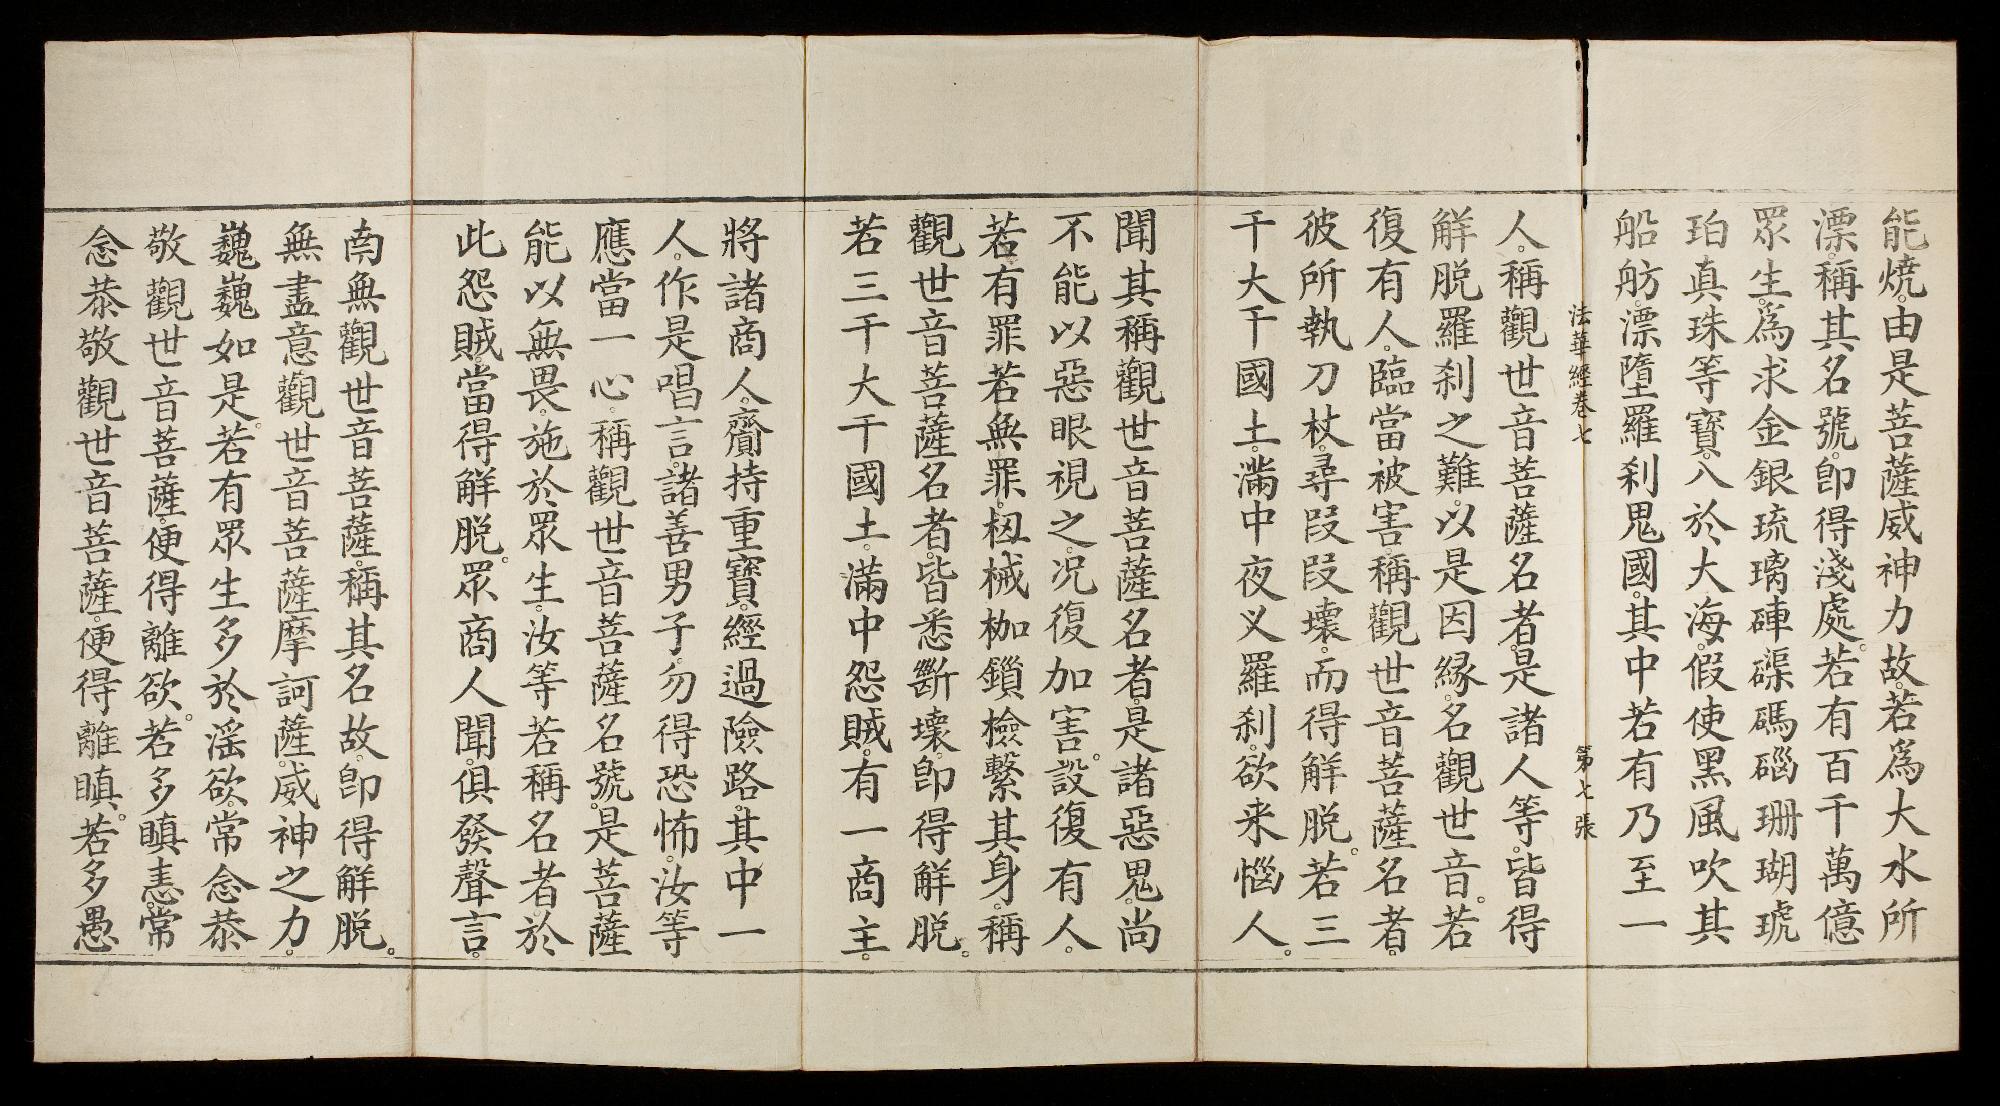 能燒。由是菩薩威神力故。若爲大水所
漂。稱其名號。卽得淺處。若有百千萬億
眾生。爲求金銀琉璃硨磲碼碯珊瑚琥
珀真珠等寶。入於大海。假使黑風吹其
船舫。漂墮羅刹鬼國。其中若有乃至一
法華經卷七　第七張
人。稱觀世音菩薩名者。是諸人等。皆得
解脫羅刹之難。以是因緣。名觀世音。若
復有人。臨當被害。稱觀世音菩薩名者。
彼所執刀杖。尋段段壞。而得解脫。若三
千大千國土。滿中夜叉羅刹。欲来惱人。
聞其稱觀世音菩薩名者。是諸惡鬼。尚
不能以惡眼視之。况復加害。設復有人。
若有罪若無罪。杻械枷鎖檢繫其身。稱
觀世音菩薩名者。皆悉斷壞。卽得解脫。
若三千大千國土。滿中怨賊。有一商主。
將諸商人。齎持重寶。經過險路。其中一
人。作是唱言。諸善男子。勿得恐怖。汝等
應當一心。稱觀世音菩薩名號。是菩薩
能以無畏。施於眾生。汝等若稱名者。於
此怨賊。當得解脫。眾商人聞。俱發聲言。
南無觀世音菩薩。稱其名故。卽得解脫。
無盡意。觀世音菩薩摩訶薩。威神之力。
巍巍如是。若有眾生。多於淫欲。常念恭
敬觀世音菩薩。便得離欲。若多瞋恚。常
念恭敬觀世音菩薩。便得離瞋。若多愚